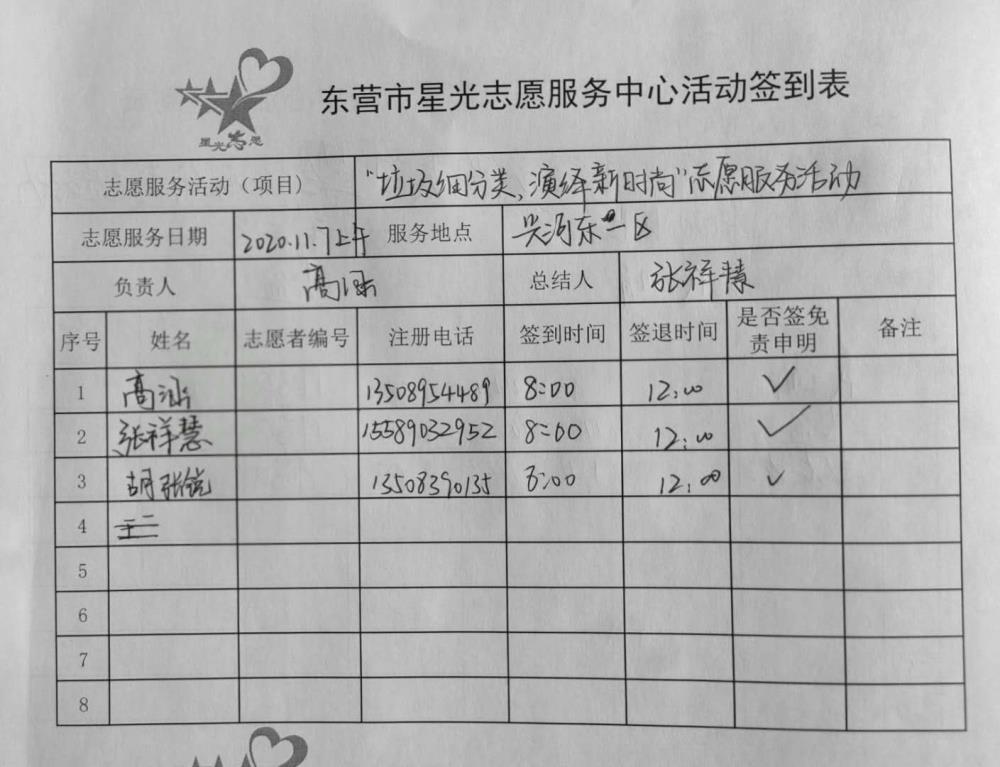 星光志愿
东营市星光志愿服务中心活动签到表
志愿服务活动（项目） "垃圾细分类,演绎新时尚"志愿服务活动
志愿服务日期 2020.11.7上午 服务地点 兴河东一区
负责人 高涵 总结人 张祥慧
序号 姓名 志愿者编号 注册电话 签到时间 签退时间 是否签免责申明 备注
1 高涵 13508954489 8:00 12:00 ✓
2 张祥慧 15589032952 8:00 12:00 ✓
3 胡张锐 13508390135 8:00 12:00 ✓
4
5
6
7
8